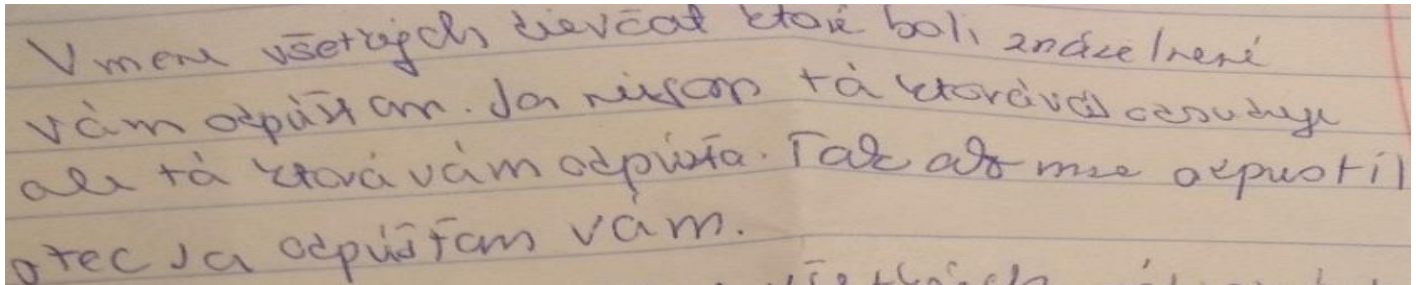 V mene všetkých dievčat ktoré boli znázelnené
vám odpúšťam. Ja niesom tá ktorá vás odsudzuje
ale tá ktorá vám odpúšťa. Tak ako mne odpustil
otec Ja odpúšťam vám.
všetkých